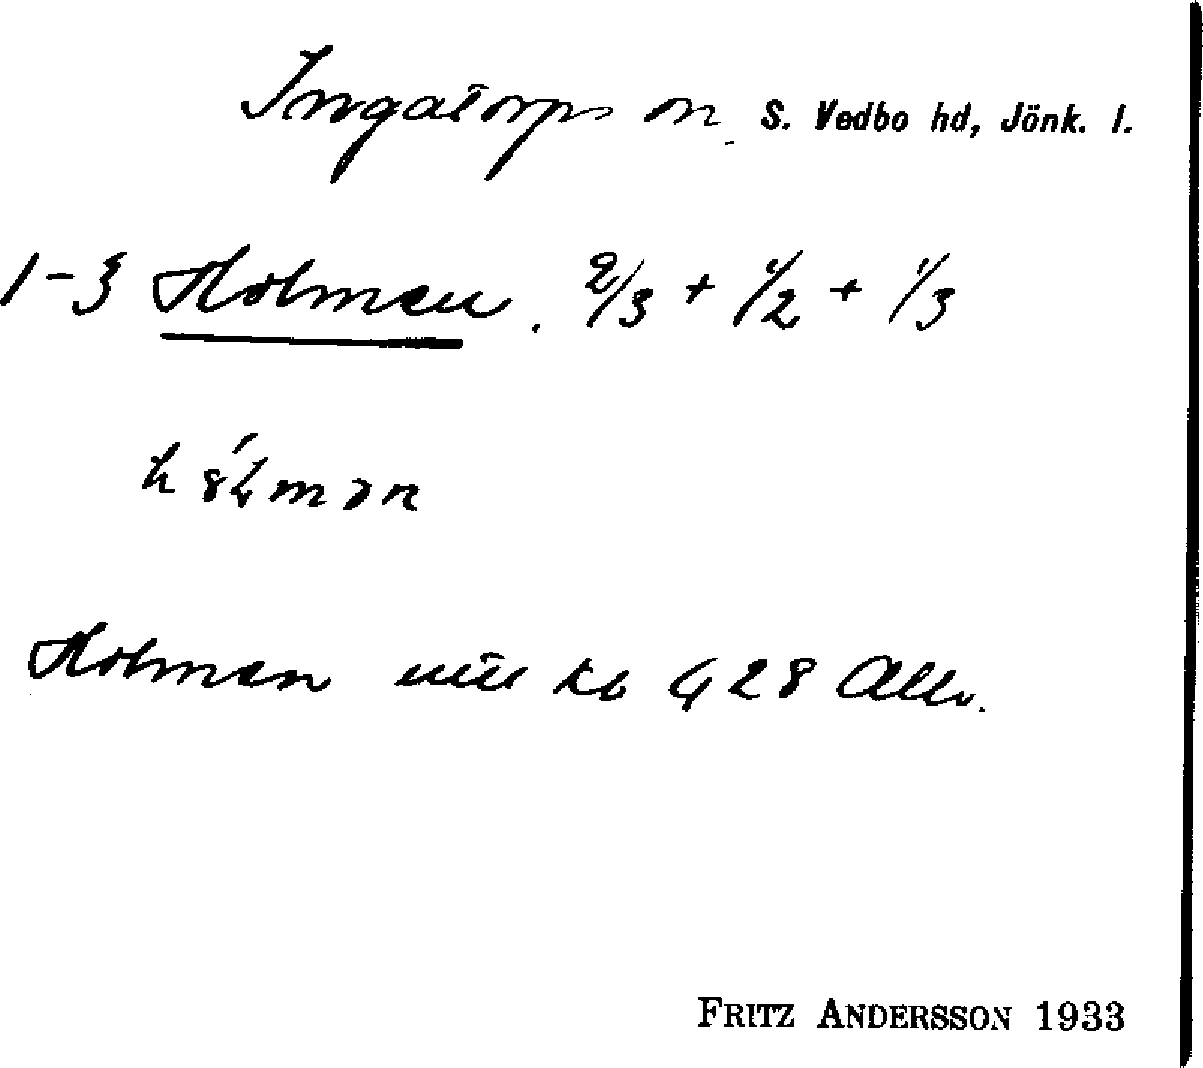 Ingatorps sn. S. Vedbo hd, Jönk. l.
1-3 Holmen. 2/3 + 1/2 + 1/3
Holmen 428 Allm.
FRITZ ANDERSSON 1933